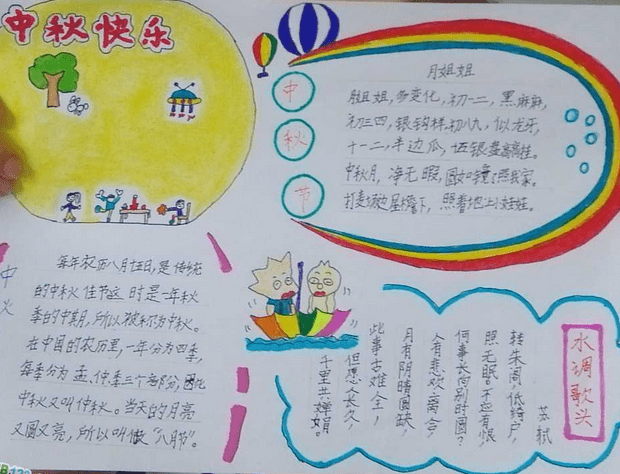 中秋快乐
中
秋
节
月姐姐
月姐姐,多变化,初一二,黑麻麻,
初三四,银钩样,初八九,似龙牙,
十一二,半边瓜,银盘高高挂。
中秋月,净无暇,圆如镜子照我家。
打麦场边屋檐下,照着地上小娃娃。
中
火
每年农历八月十五日,是传统
的中秋佳节。这时是一年秋
季的中期,所以被称为中秋。
在中国的农历里,一年分为四季,
每季分为孟、仲、季三个部分,因此
中秋又叫仲秋。当天的月亮
又圆又亮,所以叫做“八月节”。
水调歌头
苏轼
转朱阁,低绮户,
照无眠。不应有恨,
何事长向别时圆?
人有悲欢离合,
月有阴晴圆缺,
此事古难全,
但愿人长久,
千里共婵娟。